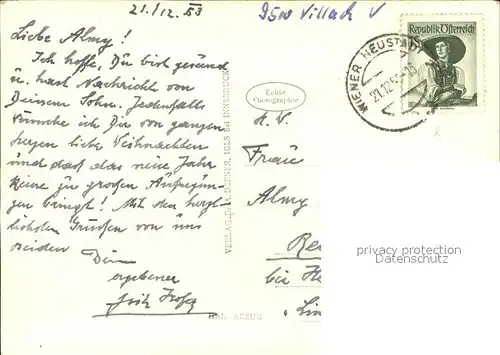 21./12.53
9500 Villach V
Republik Österreich
WIENER NEUSTADT
21.12.53-15
Liebe Almy!
Ich hoffe, Du bist gesund
u. hast Nachricht von
Deinem Sohn. Jedenfalls
wünsche ich Dir von ganzem
Herzen liebe Weihnachten
und daß das neue Jahr
keine zu großen Aufregun-
gen bringt! Mit den herz-
lichsten Grüßen von uns
beiden
Dein
ergebener
Fritz
Echte
Photographie
VERLAG DEFNER, IGLS bei INNSBRUCK
H. V.
Frau
Almy
bei
privacy protection
Datenschutz